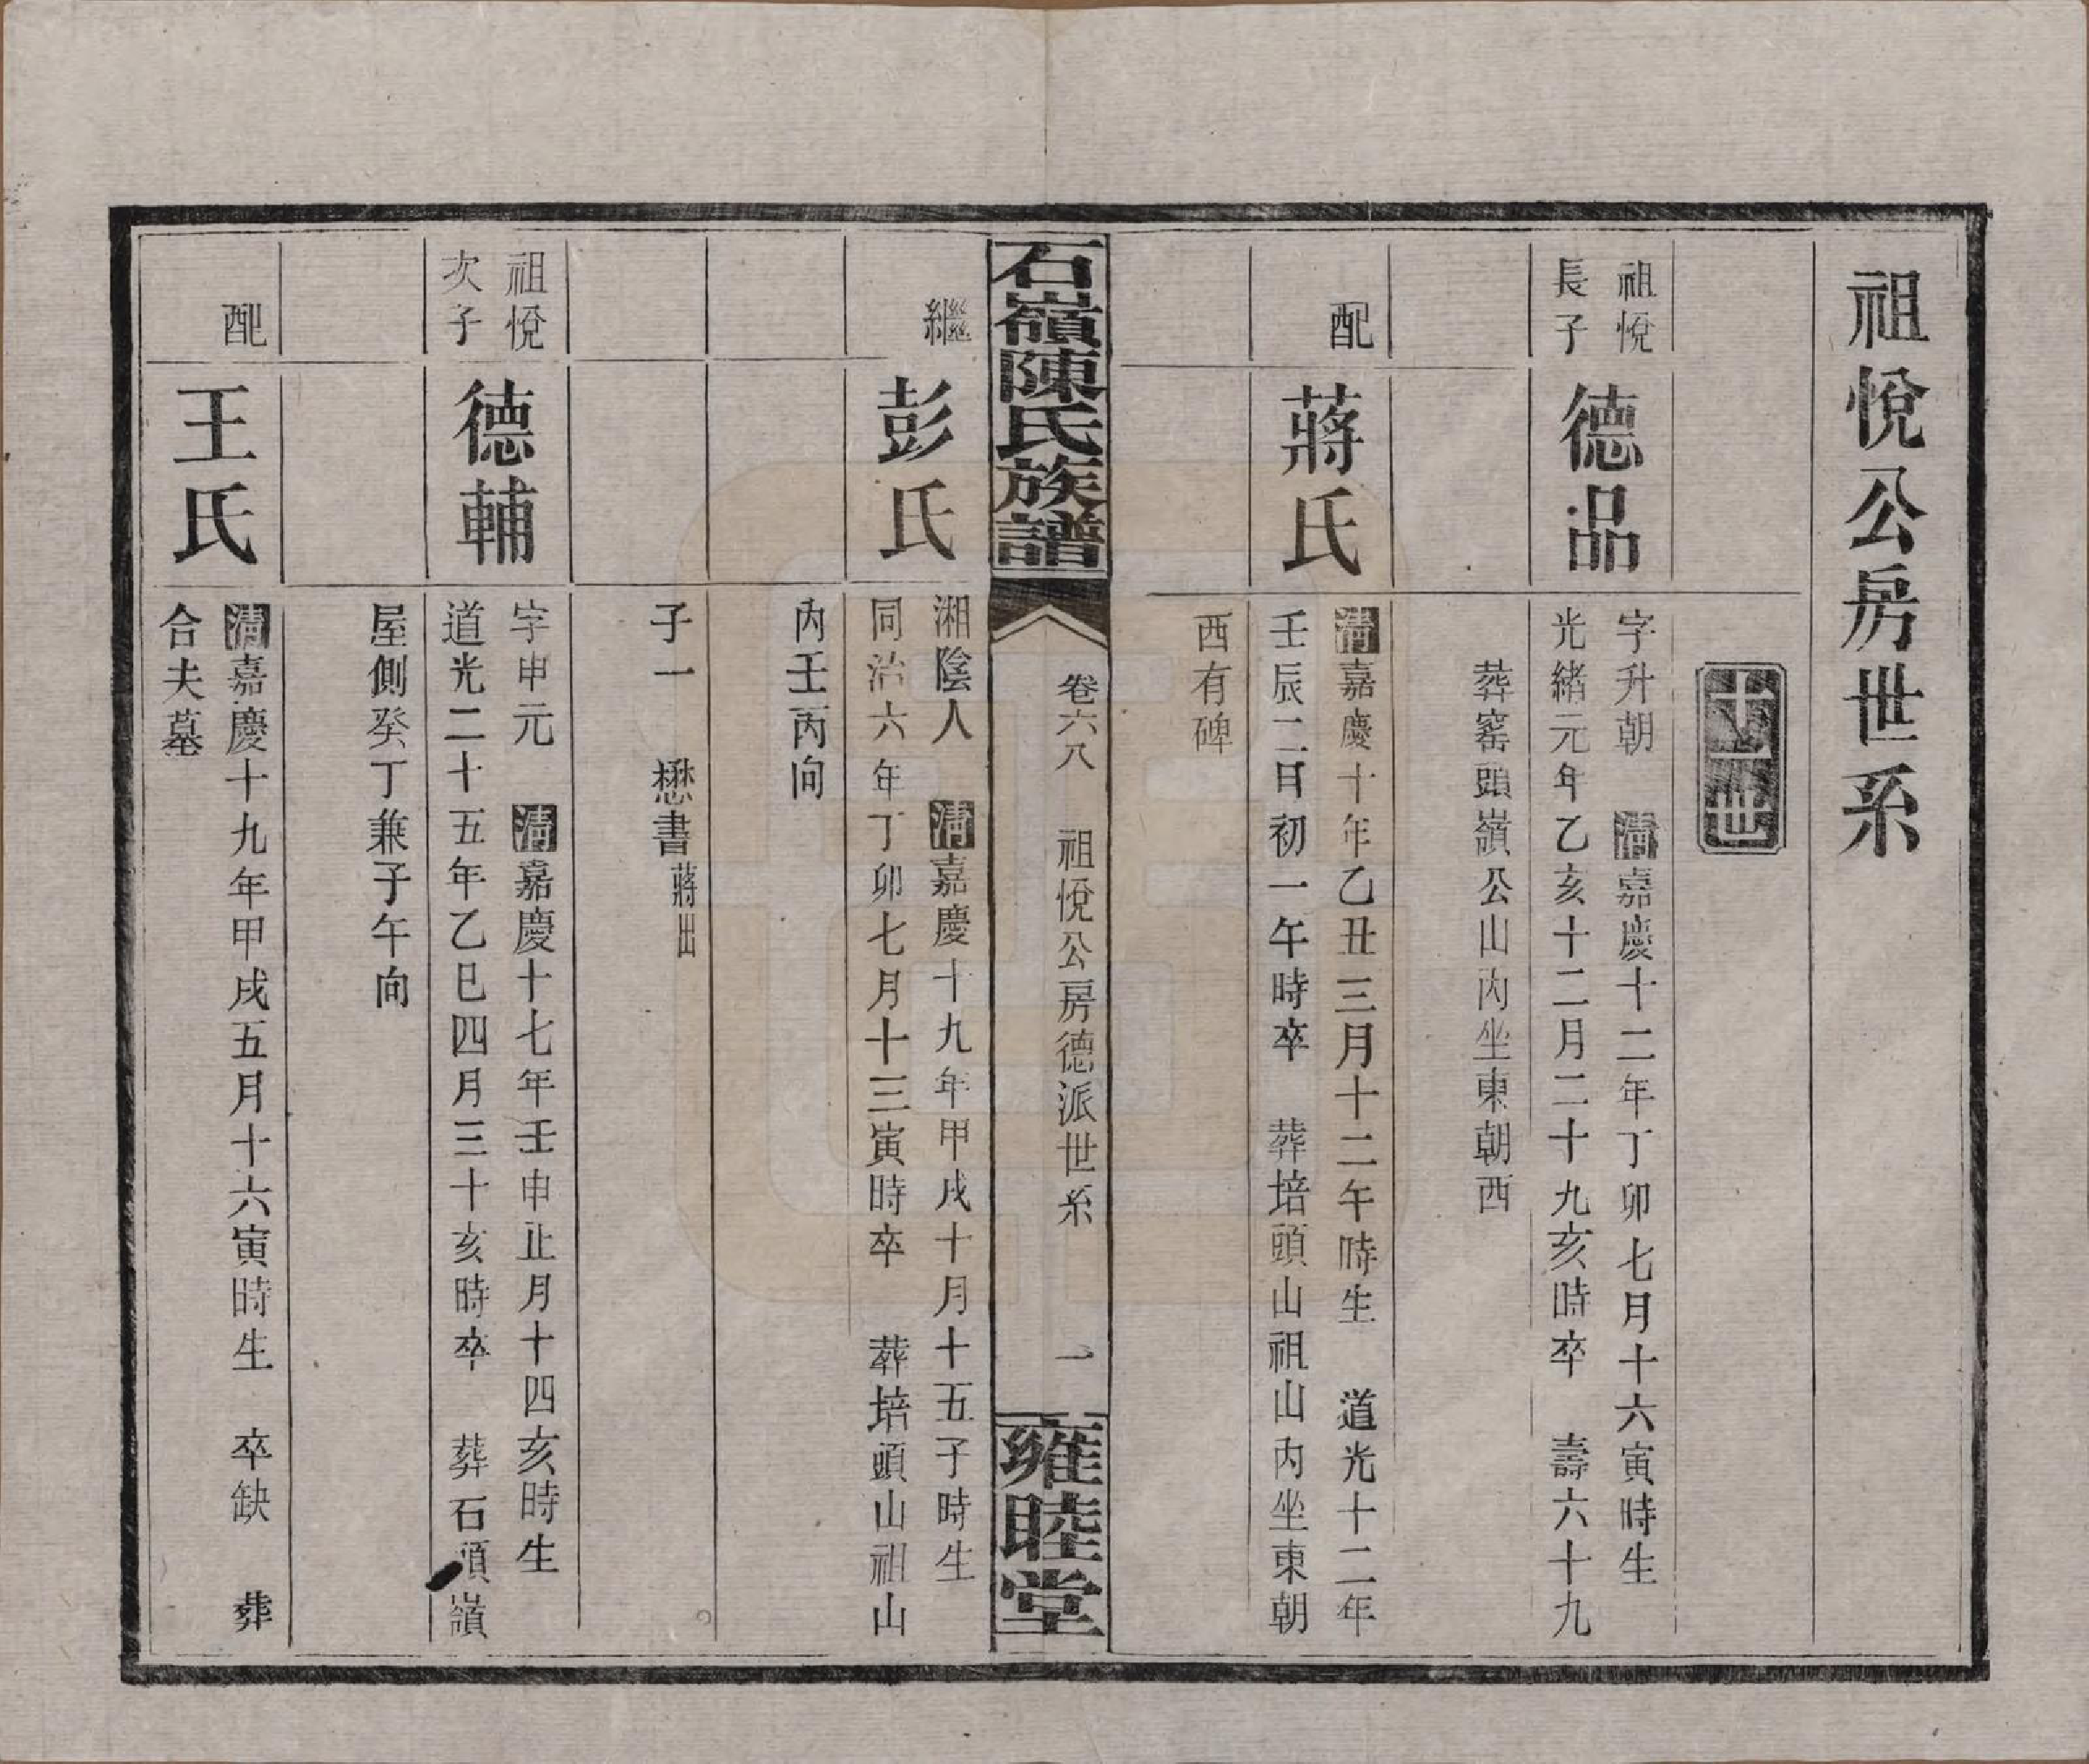 祖悅公房世系
十二世
祖悅
長子
德品
字升朝　清嘉慶十二年丁卯七月十六寅時生
光緒元年乙亥十二月二十九亥時卒　壽六十九
葬窰頭嶺公山內坐東朝西
配
蔣氏
清嘉慶十年乙丑三月十二午時生　道光十二年
壬辰二月初一午時卒　葬培頭山祖山內坐東朝
西有碑
石嶺陳氏族譜
卷六八　祖悅公房德派世系　一
雍睦堂
繼
彭氏
湘陰人　清嘉慶十九年甲戌十月十五子時生
同治六年丁卯七月十三寅時卒　葬培頭山祖山
內壬丙向
子一　懋書蔣出
祖悅
次子
德輔
字申元　清嘉慶十七年壬申正月十四亥時生
道光二十五年乙巳四月三十亥時卒　葬石頭嶺
屋側癸丁兼子午向
配
王氏
清嘉慶十九年甲戌五月十六寅時生　卒缺　葬
合夫墓